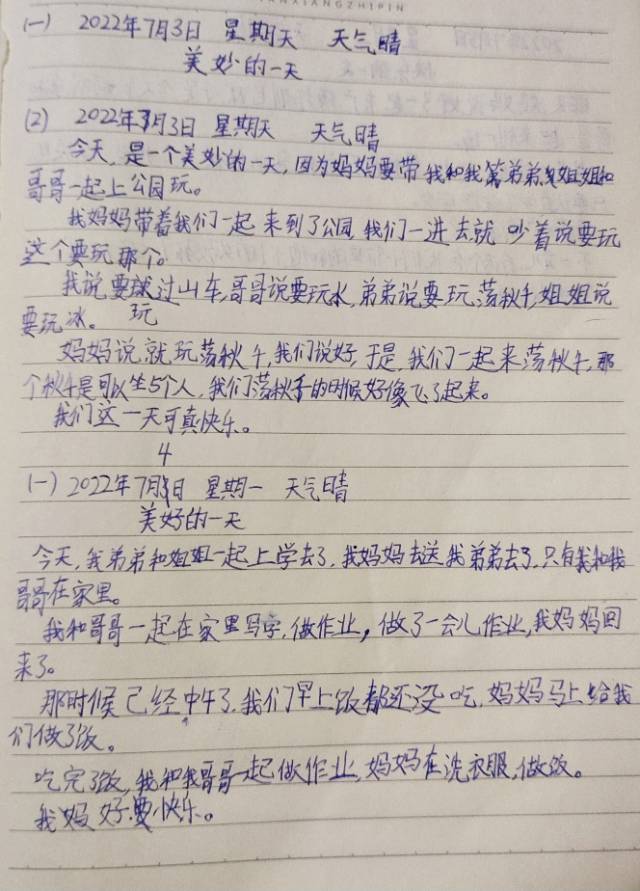 (一) 2022年7月3日 星期天 天气晴
美妙的一天
(2) 2022年7月3日 星期天 天气晴
今天,是一个美妙的一天,因为妈妈要带我和我弟弟姐姐和
哥哥一起上公园玩。
我妈妈带着我们一起来到了公园我们一进去就吵着说要玩
这个要玩那个。
我说要玩过山车,哥哥说要玩水,弟弟说要玩荡秋千,姐姐说
要玩冰。
妈妈说就玩荡秋千,我们说好,于是,我们一起来荡秋千,那
个秋千是可以坐5个人,我们荡秋千的时候好像飞了起来。
我们这一天可真快乐。
(一) 2022年7月4日 星期一 天气晴
美好的一天
今天,我弟弟和姐姐一起上学去了,我妈妈去送我弟弟去了,只有我和我
哥哥在家里。
我和哥哥一起在家里写字,做作业,做了一会儿作业,我妈妈回
来了。
那时候已经中午了,我们早上饭都还没吃,妈妈马上给我
们做了饭。
吃完了饭,我和我哥哥一起做作业,妈妈在洗衣服,做饭。
我妈好要快乐。